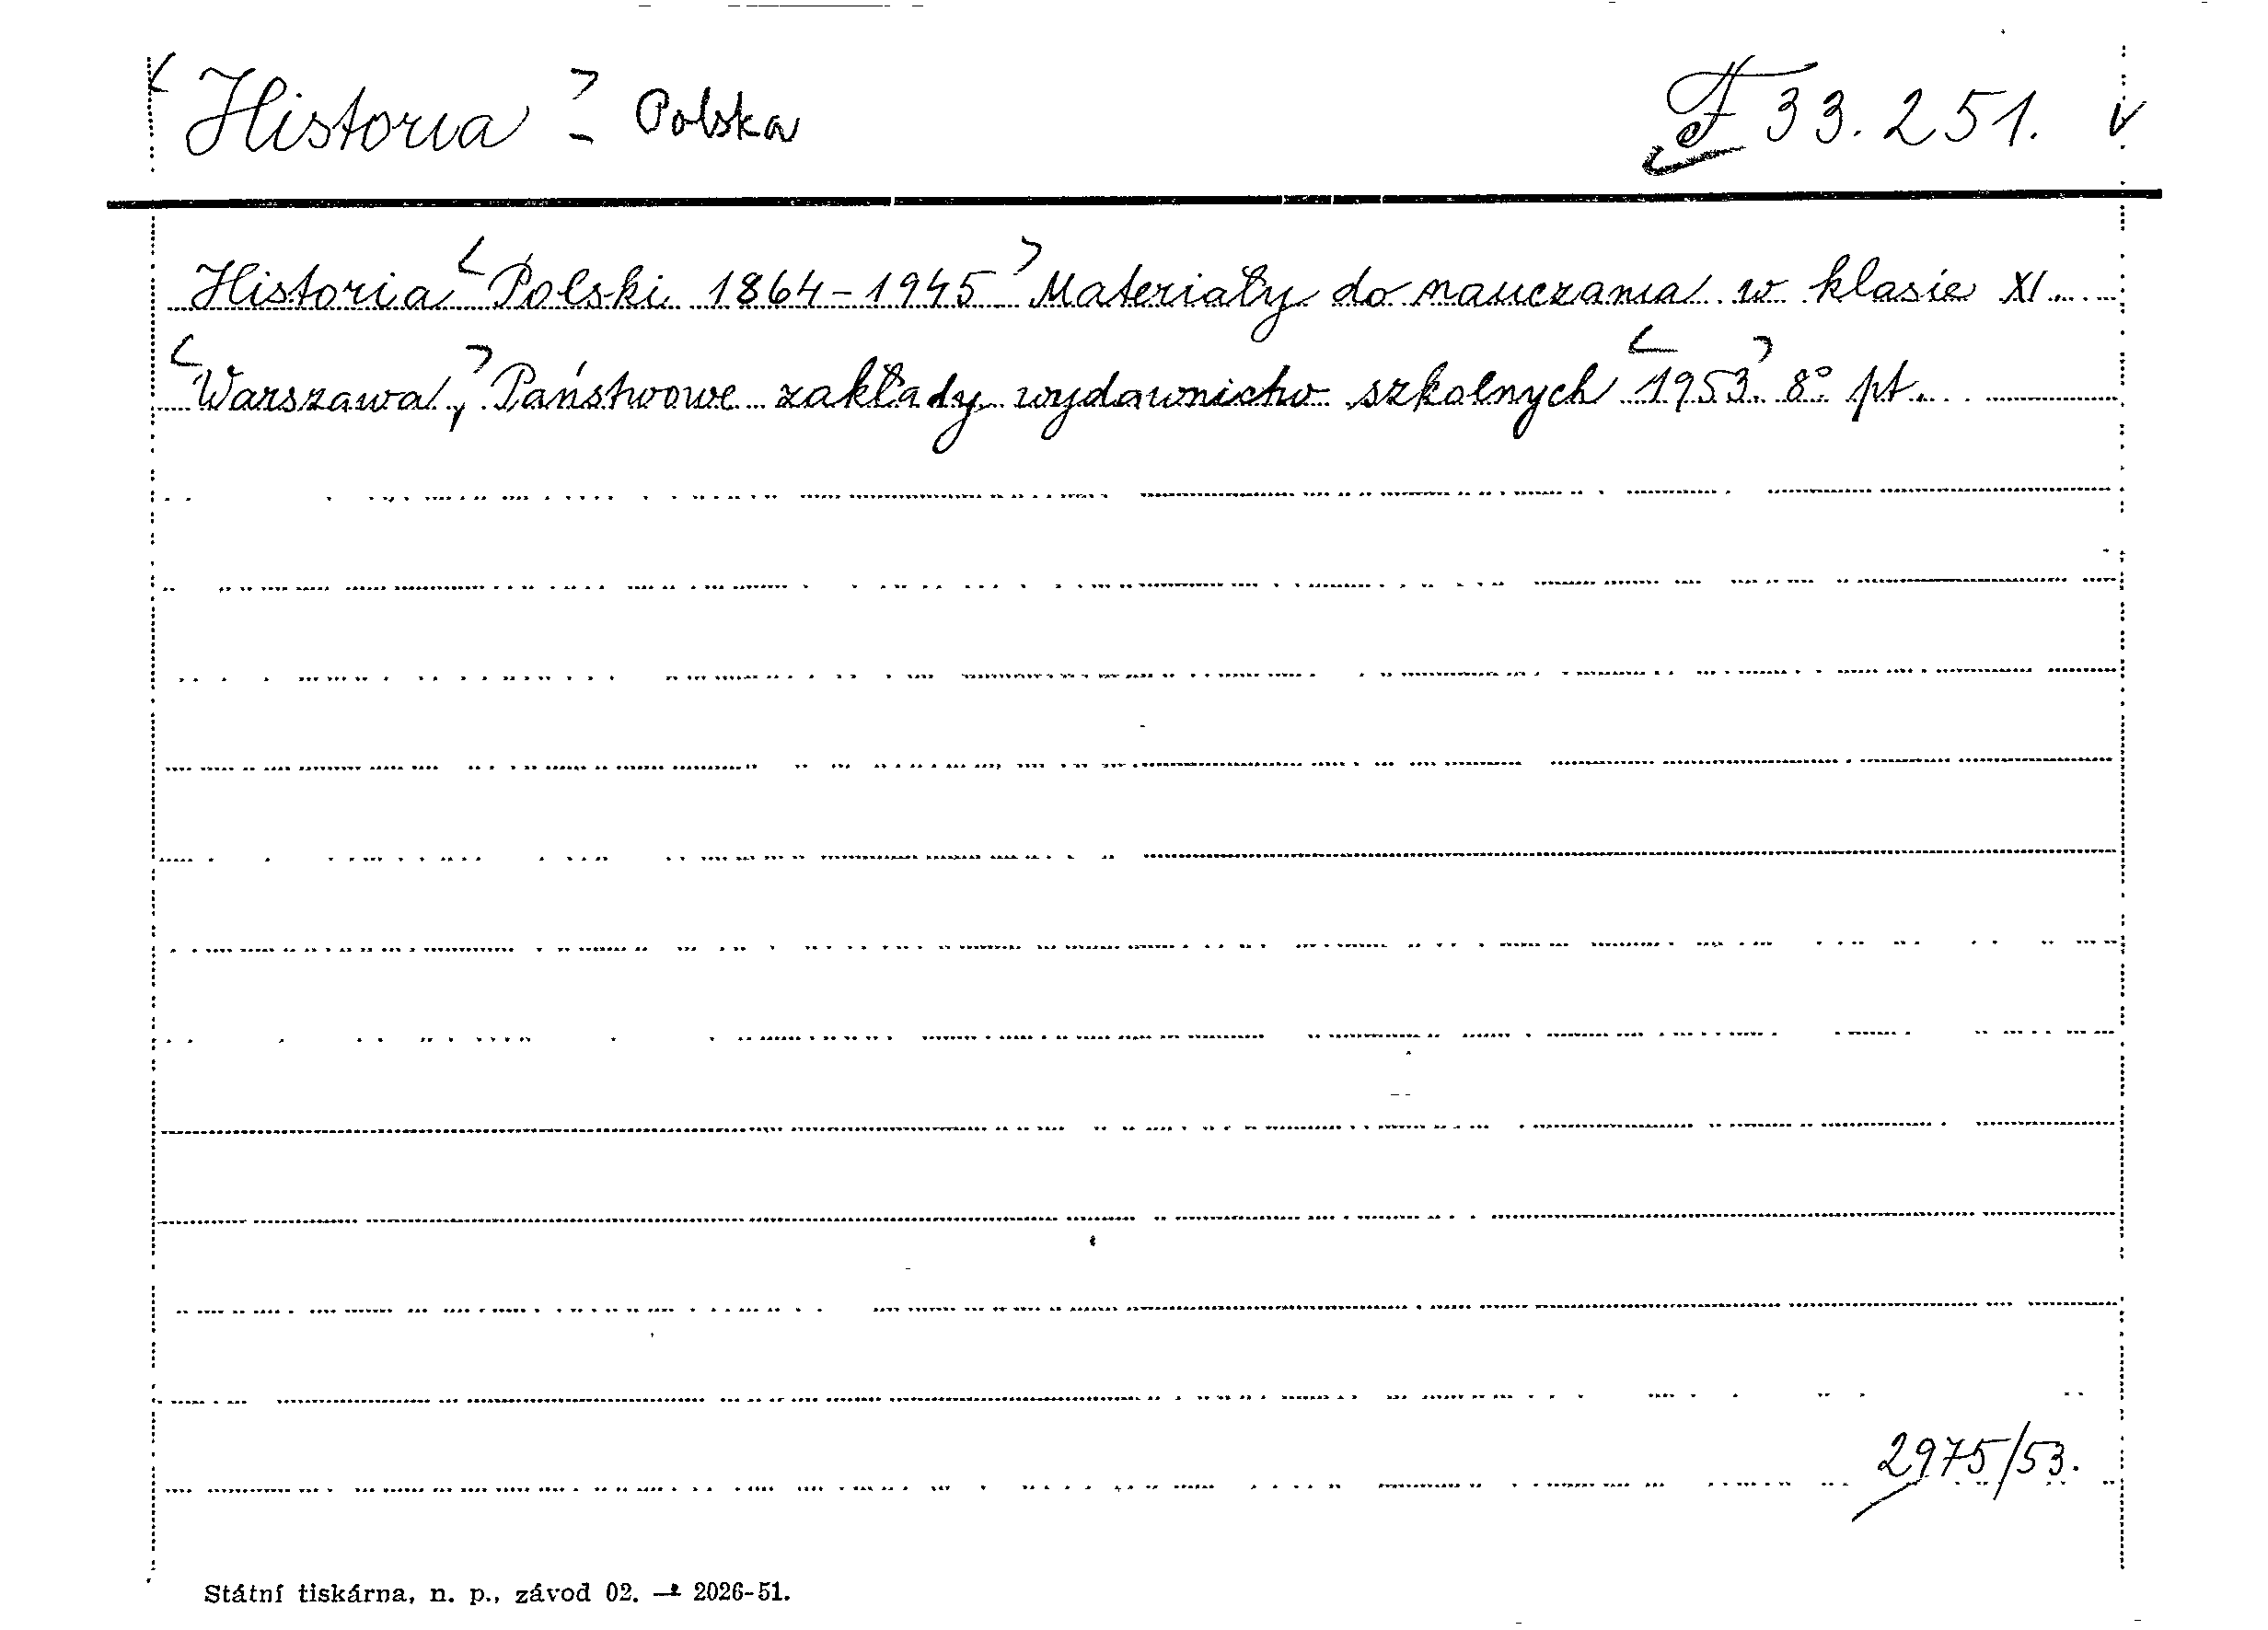 Historia - Polska F 33.251. v
Historia Polski 1864-1945 Materiały do nauczania w klasie XI.
Warszawa, Państwowe zakłady wydawnictw szkolnych 1953 8° pt.
2975/53.
Státní tiskárna, n. p., závod 02. — 2026-51.